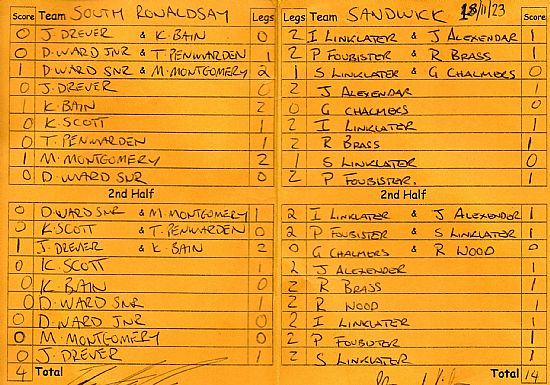 Score Team SOUTH RONALDSAY Legs Legs Team SANDWICK 18/11/23 Score
0 J. DREVER & K. BAIN 0 2 I LINKLATER & J ALEXENDAR 1
0 D. WARD JNR & T. PENWARDEN 1 2 P FOUBISTER & R BRASS 1
1 D WARD SNR & M. MONTGOMERY 2 1 S LINKLATER & G CHALMERS 0
0 J. DREVER 0 2 J ALEXENDAR 1
1 K. BAIN 2 0 G CHALMERS 0
0 K. SCOTT 1 2 I LINKLATER 1
0 T. PENWARDEN 1 2 R BRASS 1
1 M. MONTGOMERY 2 1 S LINKLATER 0
0 D. WARD SNR 0 2 P FOUBISTER. 1
2nd Half 2nd Half
0 D. WARD SNR & M. MONTGOMERY 1 2 I LINKLATER & J ALEXENDER 1
0 K. SCOTT & T. PENWARDEN 0 2 P FOUBISTER & S LINKLATER 1
1 J. DREVER & K. BAIN 2 0 G CHALMERS & R WOOD 0
0 K. SCOTT 1 2 J ALEXENDER 1
0 K. BAIN 0 2 R BRASS 1
0 D. WARD SNR 1 2 R WOOD 1
0 D. WARD JNR 0 2 I LINKLATER 1
0 M. MONTGOMERY 0 2 P FOUBISTER 1
0 J. DREVER 1 2 S LINKLATER 1
4 Total Total 14